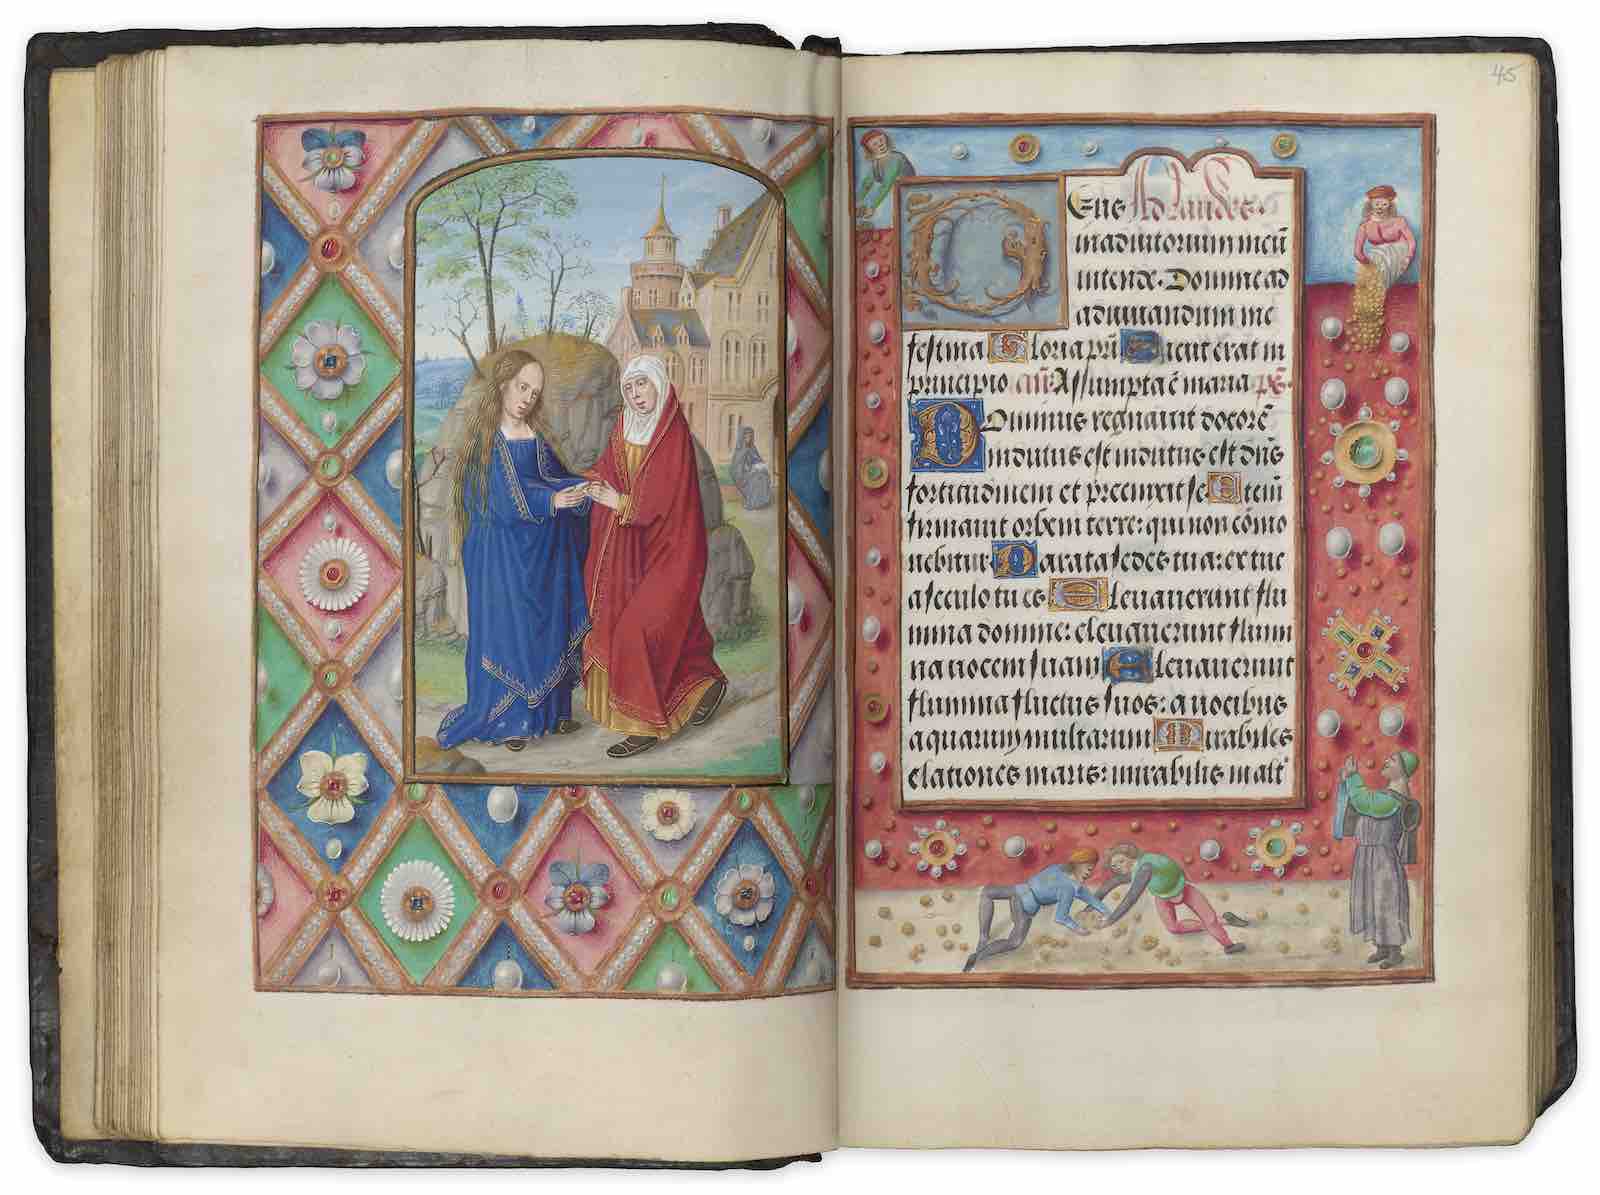 45
Deus Ad laudes
in adiutorium meū
intende. Domine ad
adiuuandum me
festina Gloria pr̄i Sicut erat in
principio añ. Assumpta ē maria ps̄.
Dominus regnauit decorē
indutus est indutus est dn̄s
fortitudinem et precinxit se Etenī
firmauit orbem terre: qui non cōmo
uebitur Parata sedes tua: ex tūc
a seculo tu es Eleuauerunt flu
mina domine: eleuauerunt flumi
na uocem suam Eleuauerunt
flumina fluctus suos: a uocibus
aquarum multarum Mirabiles
elationes maris: mirabilis in alt'